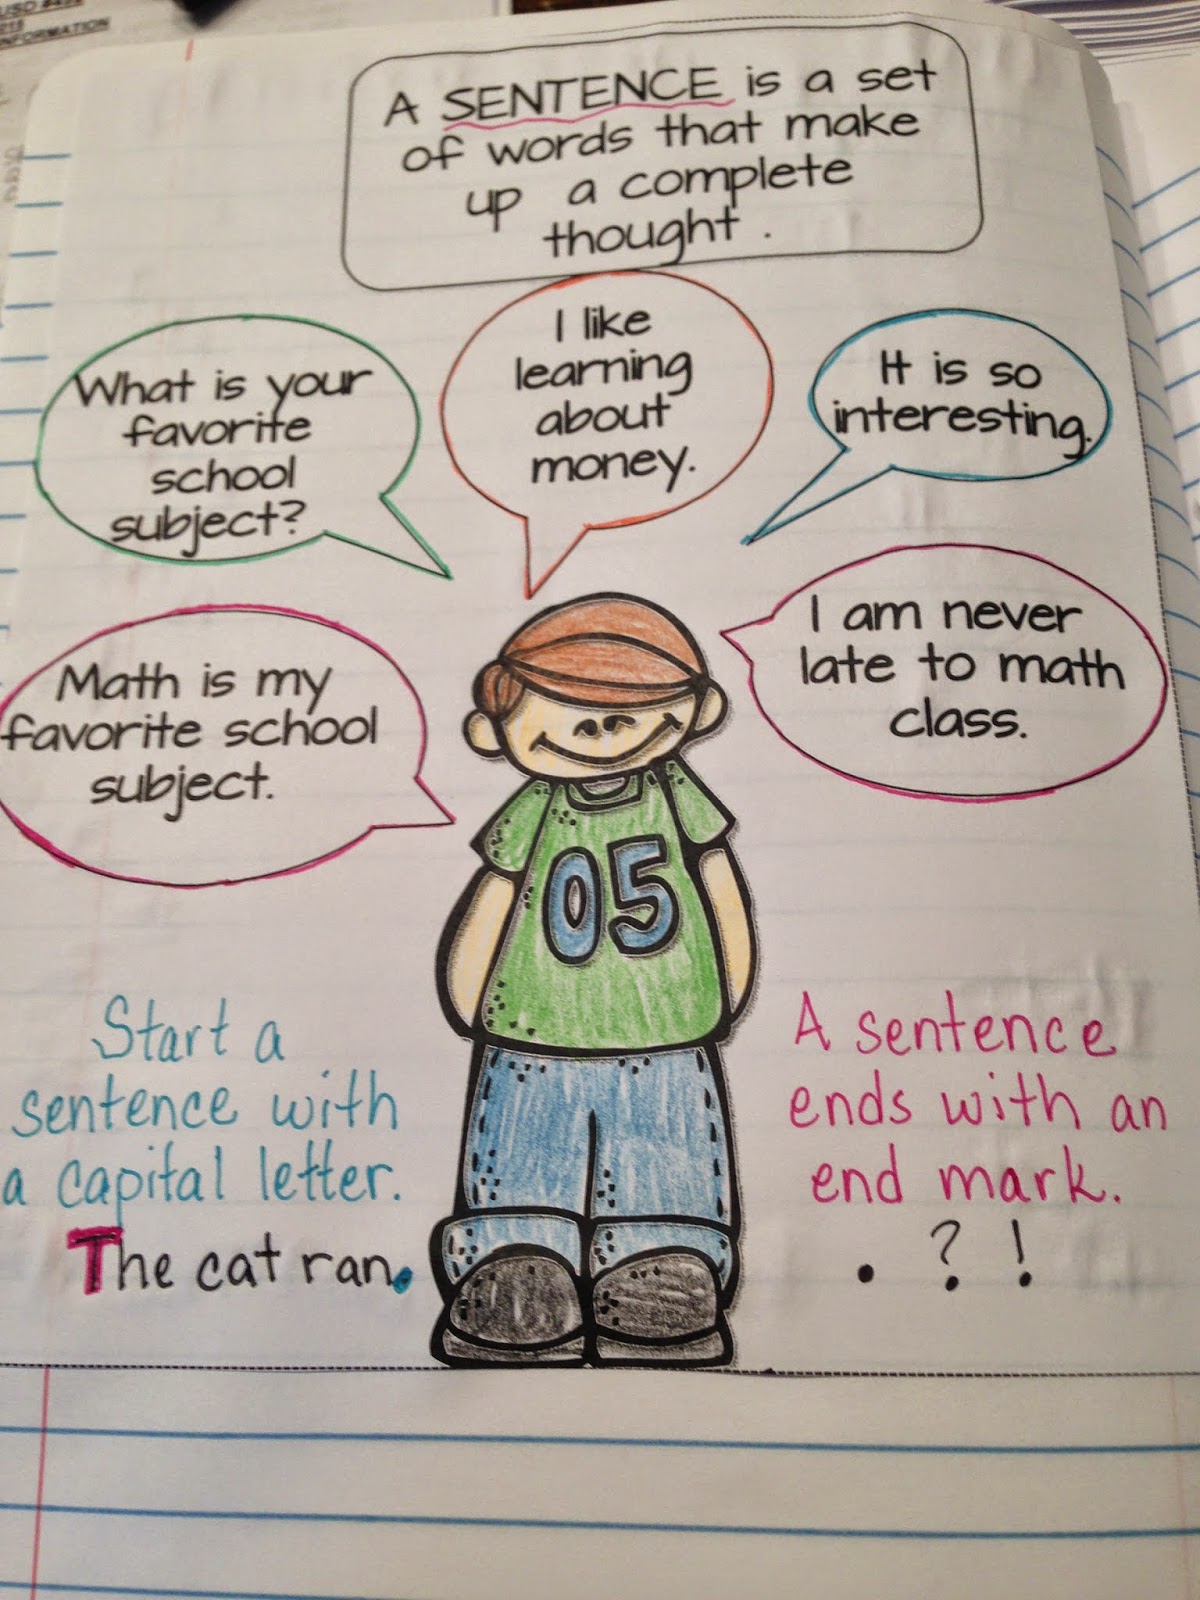 USD #4
2015
INFORMATION
A SENTENCE is a set
of words that make
up a complete
thought .
What is your
favorite
school
subject?
I like
learning
about
money.
It is so
interesting.
Math is my
favorite school
subject.
I am never
late to math
class.
05
Start a
sentence with
a capital letter.
The cat ran.
A sentence
ends with an
end mark.
. ? !